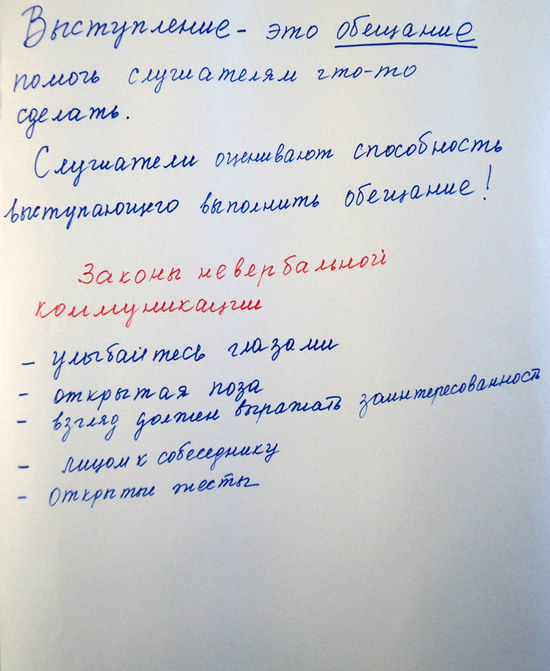 Выступление - это обещание
помочь слушателям что-то
сделать.
Слушатели оценивают способность
выступающего выполнить обещание!
Законы невербальной
коммуникации
- улыбайтесь глазами
- открытая поза
- взгляд должен выражать заинтересованность
- лицом к собеседнику
- открытые жесты